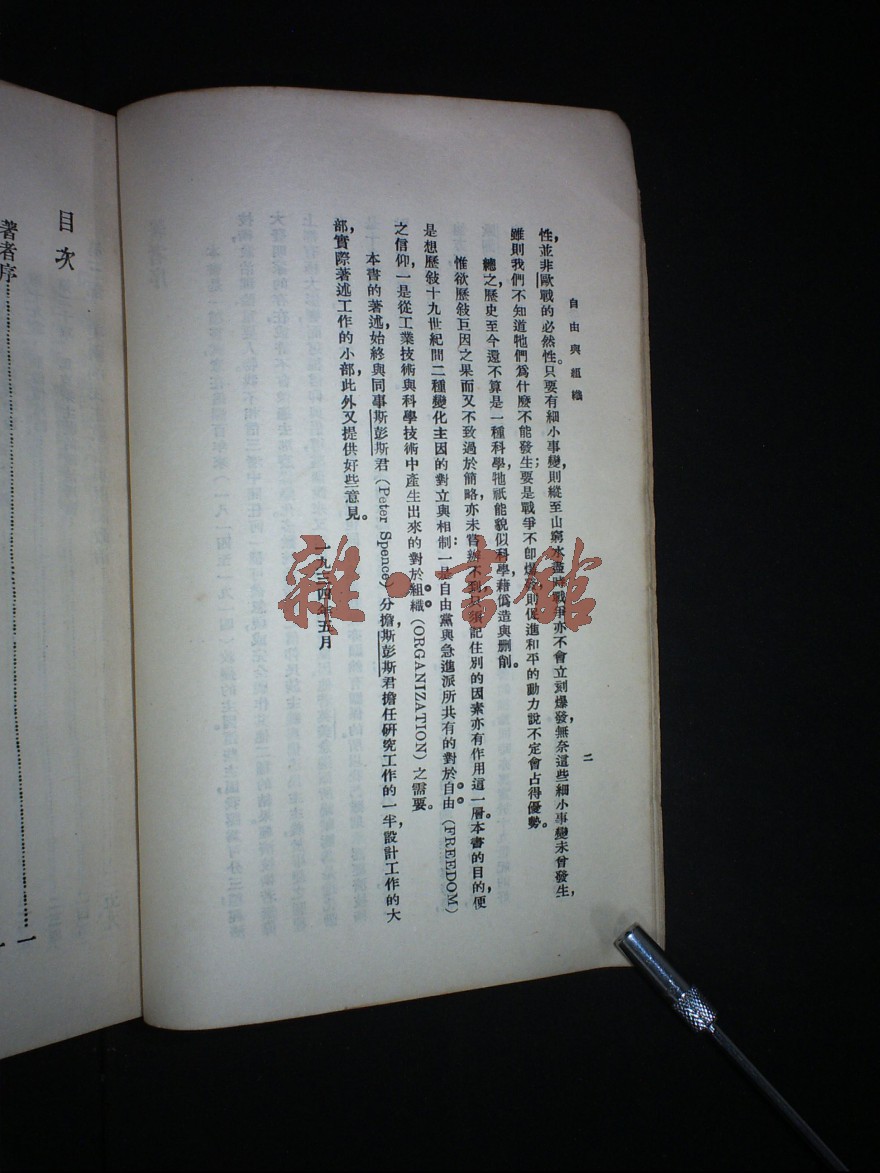 自由與組織
二
性，並非歐戰的必然性。只要有細小事變，則縱至山窮水盡時，戰爭亦不會立刻爆發，無奈這些細小事變未曾發生，
雖則我們不知道牠們爲什麼不能發生；要是戰爭不卽爆發，則促進和平的動力，說不定會占得優勢。
總之，歷史至今還不算是一種科學，牠祇能貌似科學，藉僞造與刪削。
惟欲歷敍巨因之果，而又不致過於簡略，亦未嘗辦不到，只須記住別的因素亦有作用這一層。本書的目的，便
是想歷敍十九世紀間二種變化主因的對立與相制：一是自由黨與急進派所共有的對於自由（FREEDOM）
之信仰，一是從工業技術與科學技術中產生出來的對於組織（ORGANIZATION）之需要。
本書的著述，始終與同事斯彭斯君（Peter Spence）分擔，斯彭斯君擔任研究工作的一半，設計工作的大
部，實際著述工作的小部，此外又提供好些意見。
一九三四年五月
目次
著者序……一
雜·書館